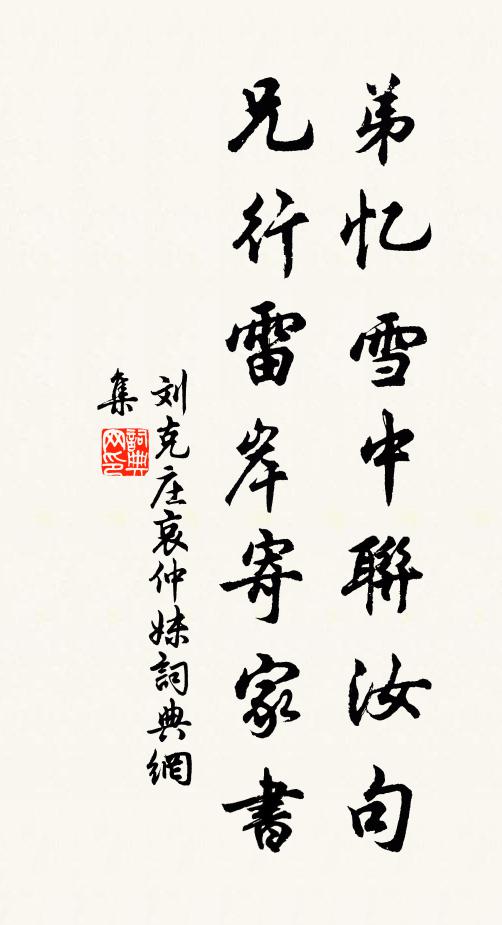 弟忆雪中聯汝句
兄行雷岸寄家書
刘克庄哀仲妹詞典網
集
詞典网印